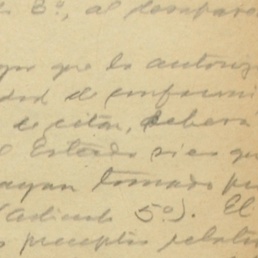 3º, al
que lo autoriz
dad de conformi
de citar, deberá
Estado si es qu
hayan tomado
(artículo 5º). El
preceptos relativ